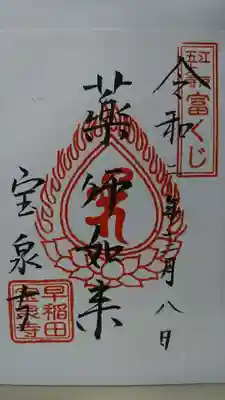 富くじ
令和一年十二月八日
薬師如来
宝泉寺
早稲田
宝泉寺